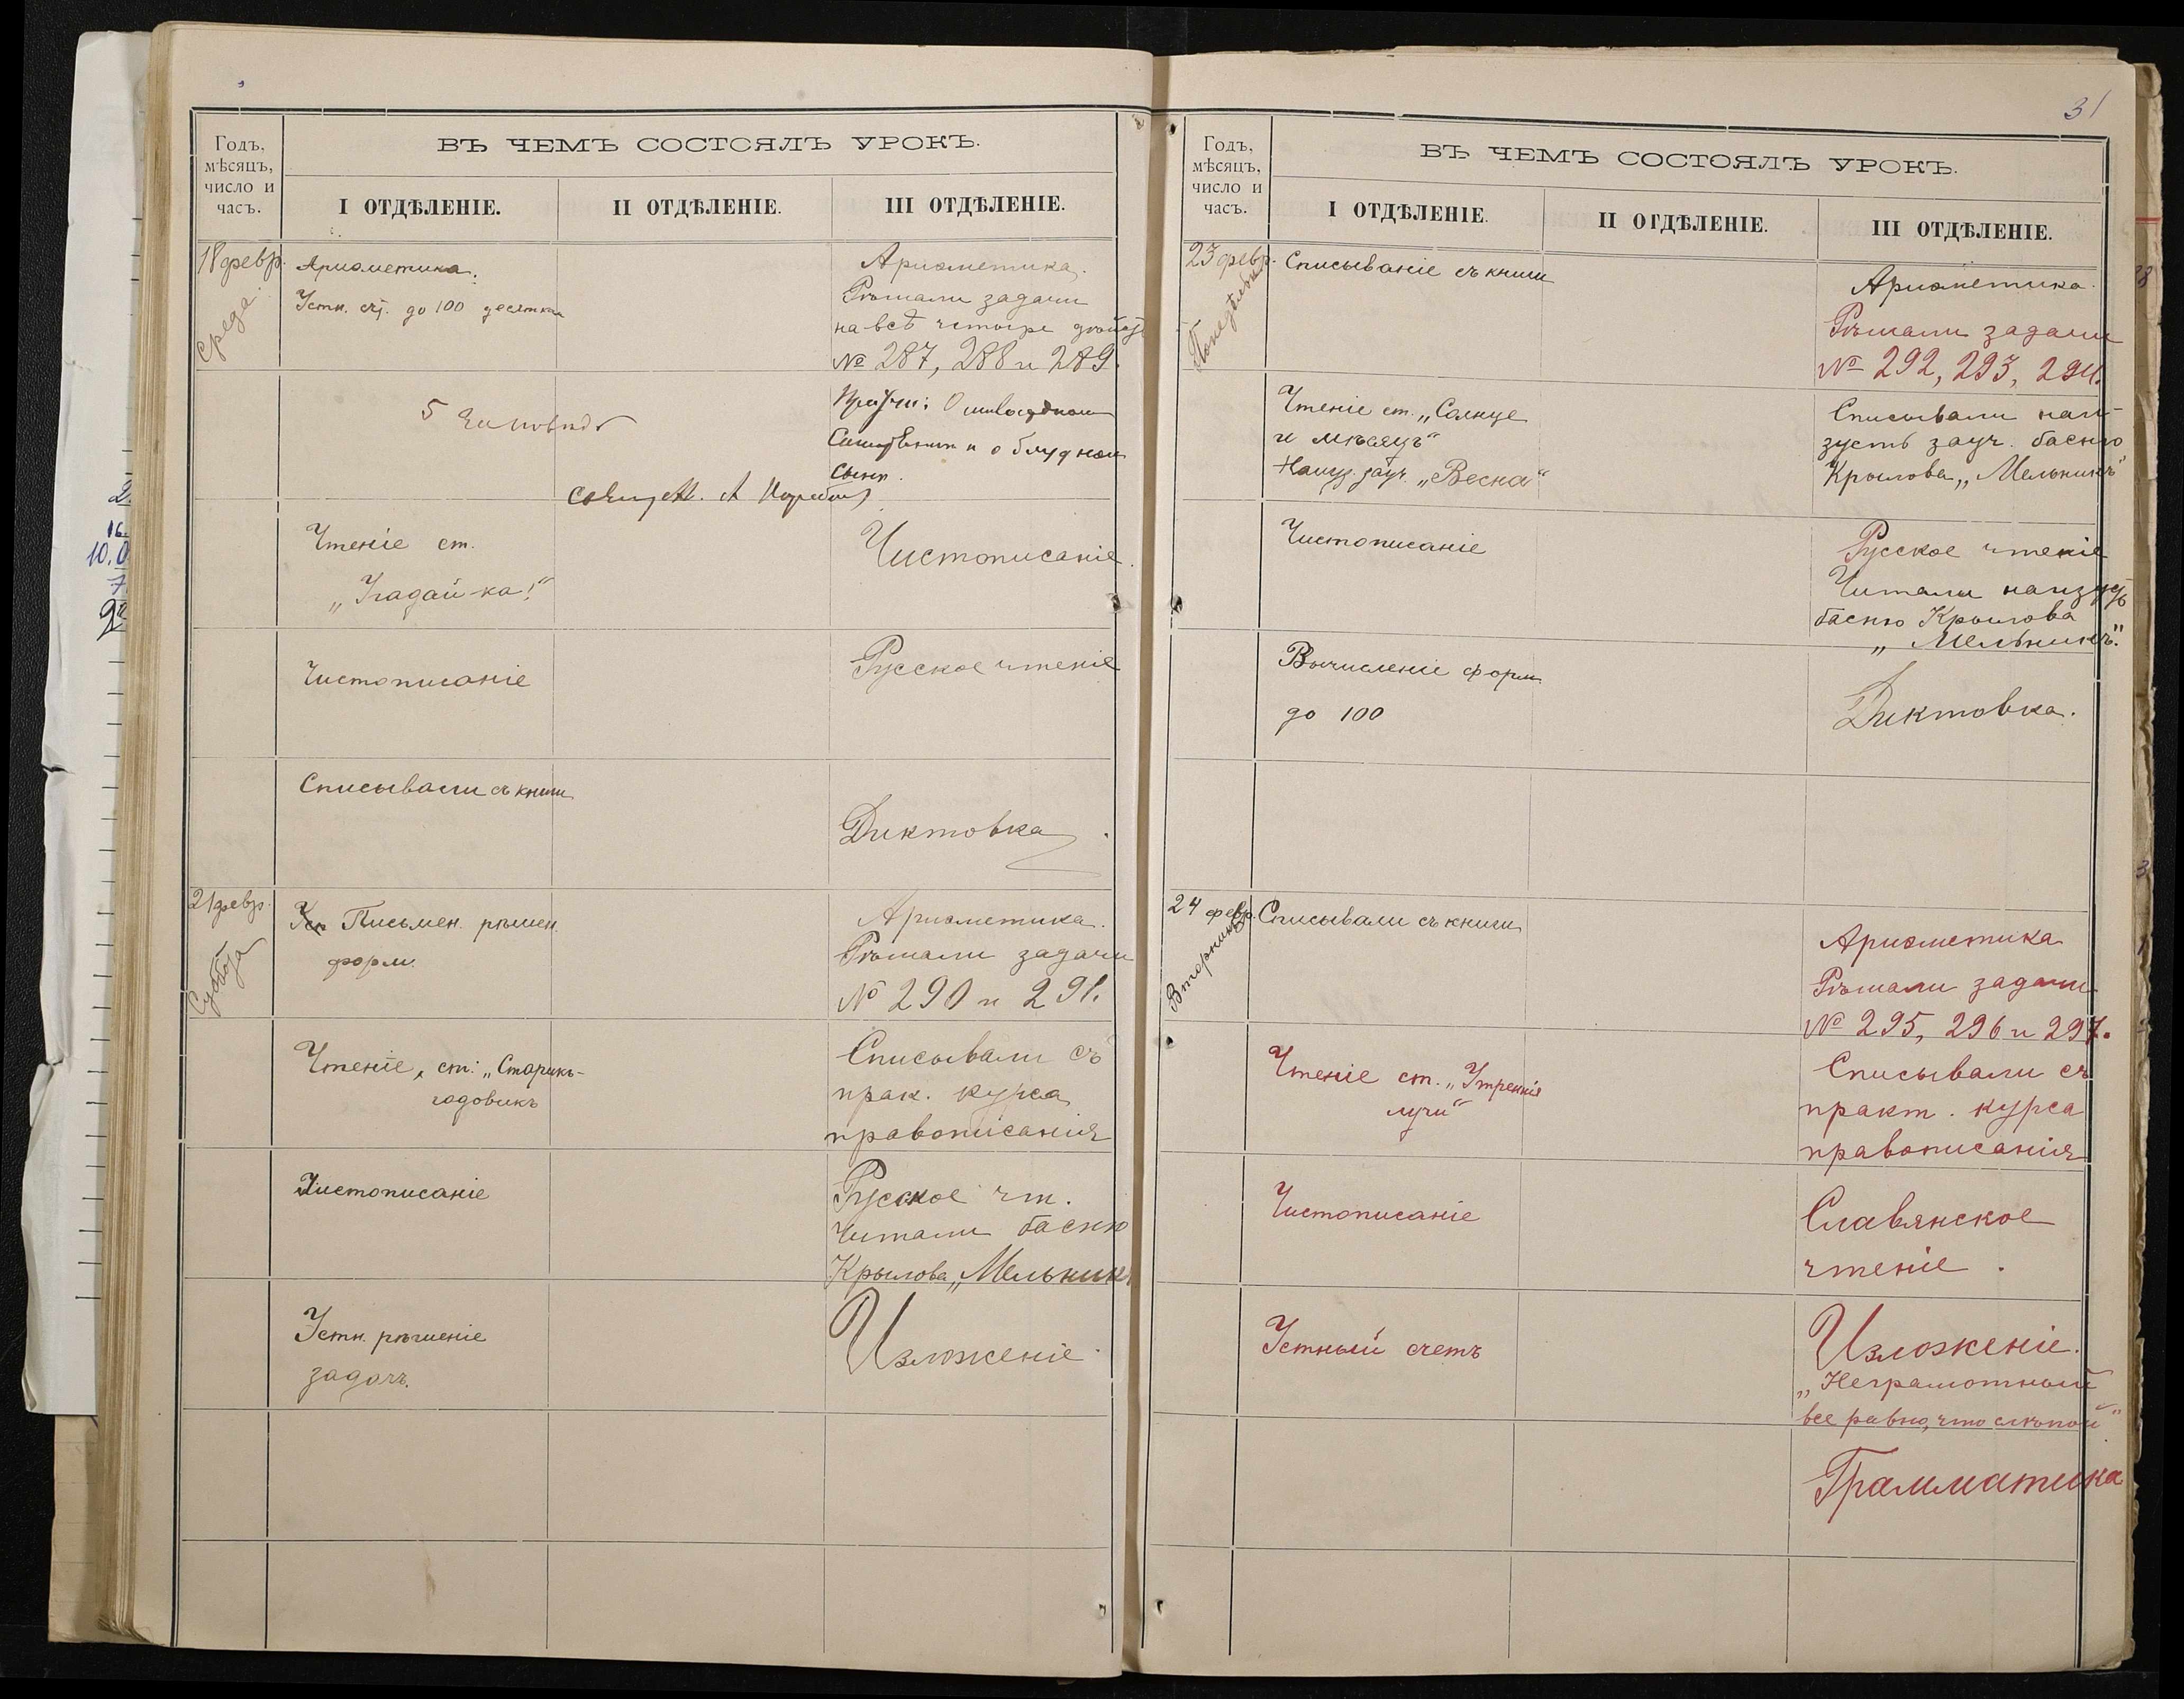 Годъ,
мѣсяцъ,
число и
часъ.
ВЪ ЧЕМЪ СОСТОЯЛЪ УРОКЪ.
I ОТДѢЛЕНІЕ.
II ОТДѢЛЕНІЕ.
III ОТДѢЛЕНІЕ.
18 февр.
Среда.
Ариѳметика.
Устн. сч. до 100 десятка
Ариѳметика.
Рѣшали задачи
на всѣ четыре
№ 287, 288 и 289.
5 Заповѣдь
Притчи: О милосердном
и о блудном
сынѣ.
Свящ. А.
Чтеніе ст.
„Угадай-ка!“
Чистописаніе.
Чистописаніе
Русское чтеніе
Списывали съ книги
Диктовка.
21 февр.
Суббота
Письмен. рѣшен.
форм.
Ариѳметика.
Рѣшали задачи
№ 290 и 291.
Чтеніе, ст: „Старикъ-
годовикъ
Списывали съ
прак. курса
правописанія
Чистописаніе
Русское чт.
Читали басню
Крылова „Мельникъ
Устн. рѣшеніе
задачъ.
Изложеніе.
31
Годъ,
мѣсяцъ,
число и
часъ.
ВЪ ЧЕМЪ СОСТОЯЛЪ УРОКЪ.
I ОТДѢЛЕНІЕ.
II ОТДѢЛЕНІЕ.
III ОТДѢЛЕНІЕ.
23 февр.
Понедѣльник
Списываніе съ книги
Ариѳметика.
Рѣшали задачи
№ 292, 293, 294.
Чтеніе ст. „Солнце
и мѣсяцъ“
Наиз. зауч. „Весна“
Списывали наи-
зусть зауч. басню
Крылова „Мельникъ“
Чистописаніе
Русское чтеніе
Читали наизусть
басню Крылова
„Мельникъ“.
Вычисленіе форм
до 100
Диктовка.
24 февр.
Вторникъ
Списывали съ книги
Ариѳметика
Рѣшали задачи
№ 295, 296 и 297.
Чтеніе ст. „Утренніе
лучи“
Списывали съ
практ. курса
правописанія
Чистописаніе
Славянское
чтеніе.
Устный счетъ
Изложеніе.
„Неграмотный
все равно, что слѣпой“.
Грамматика